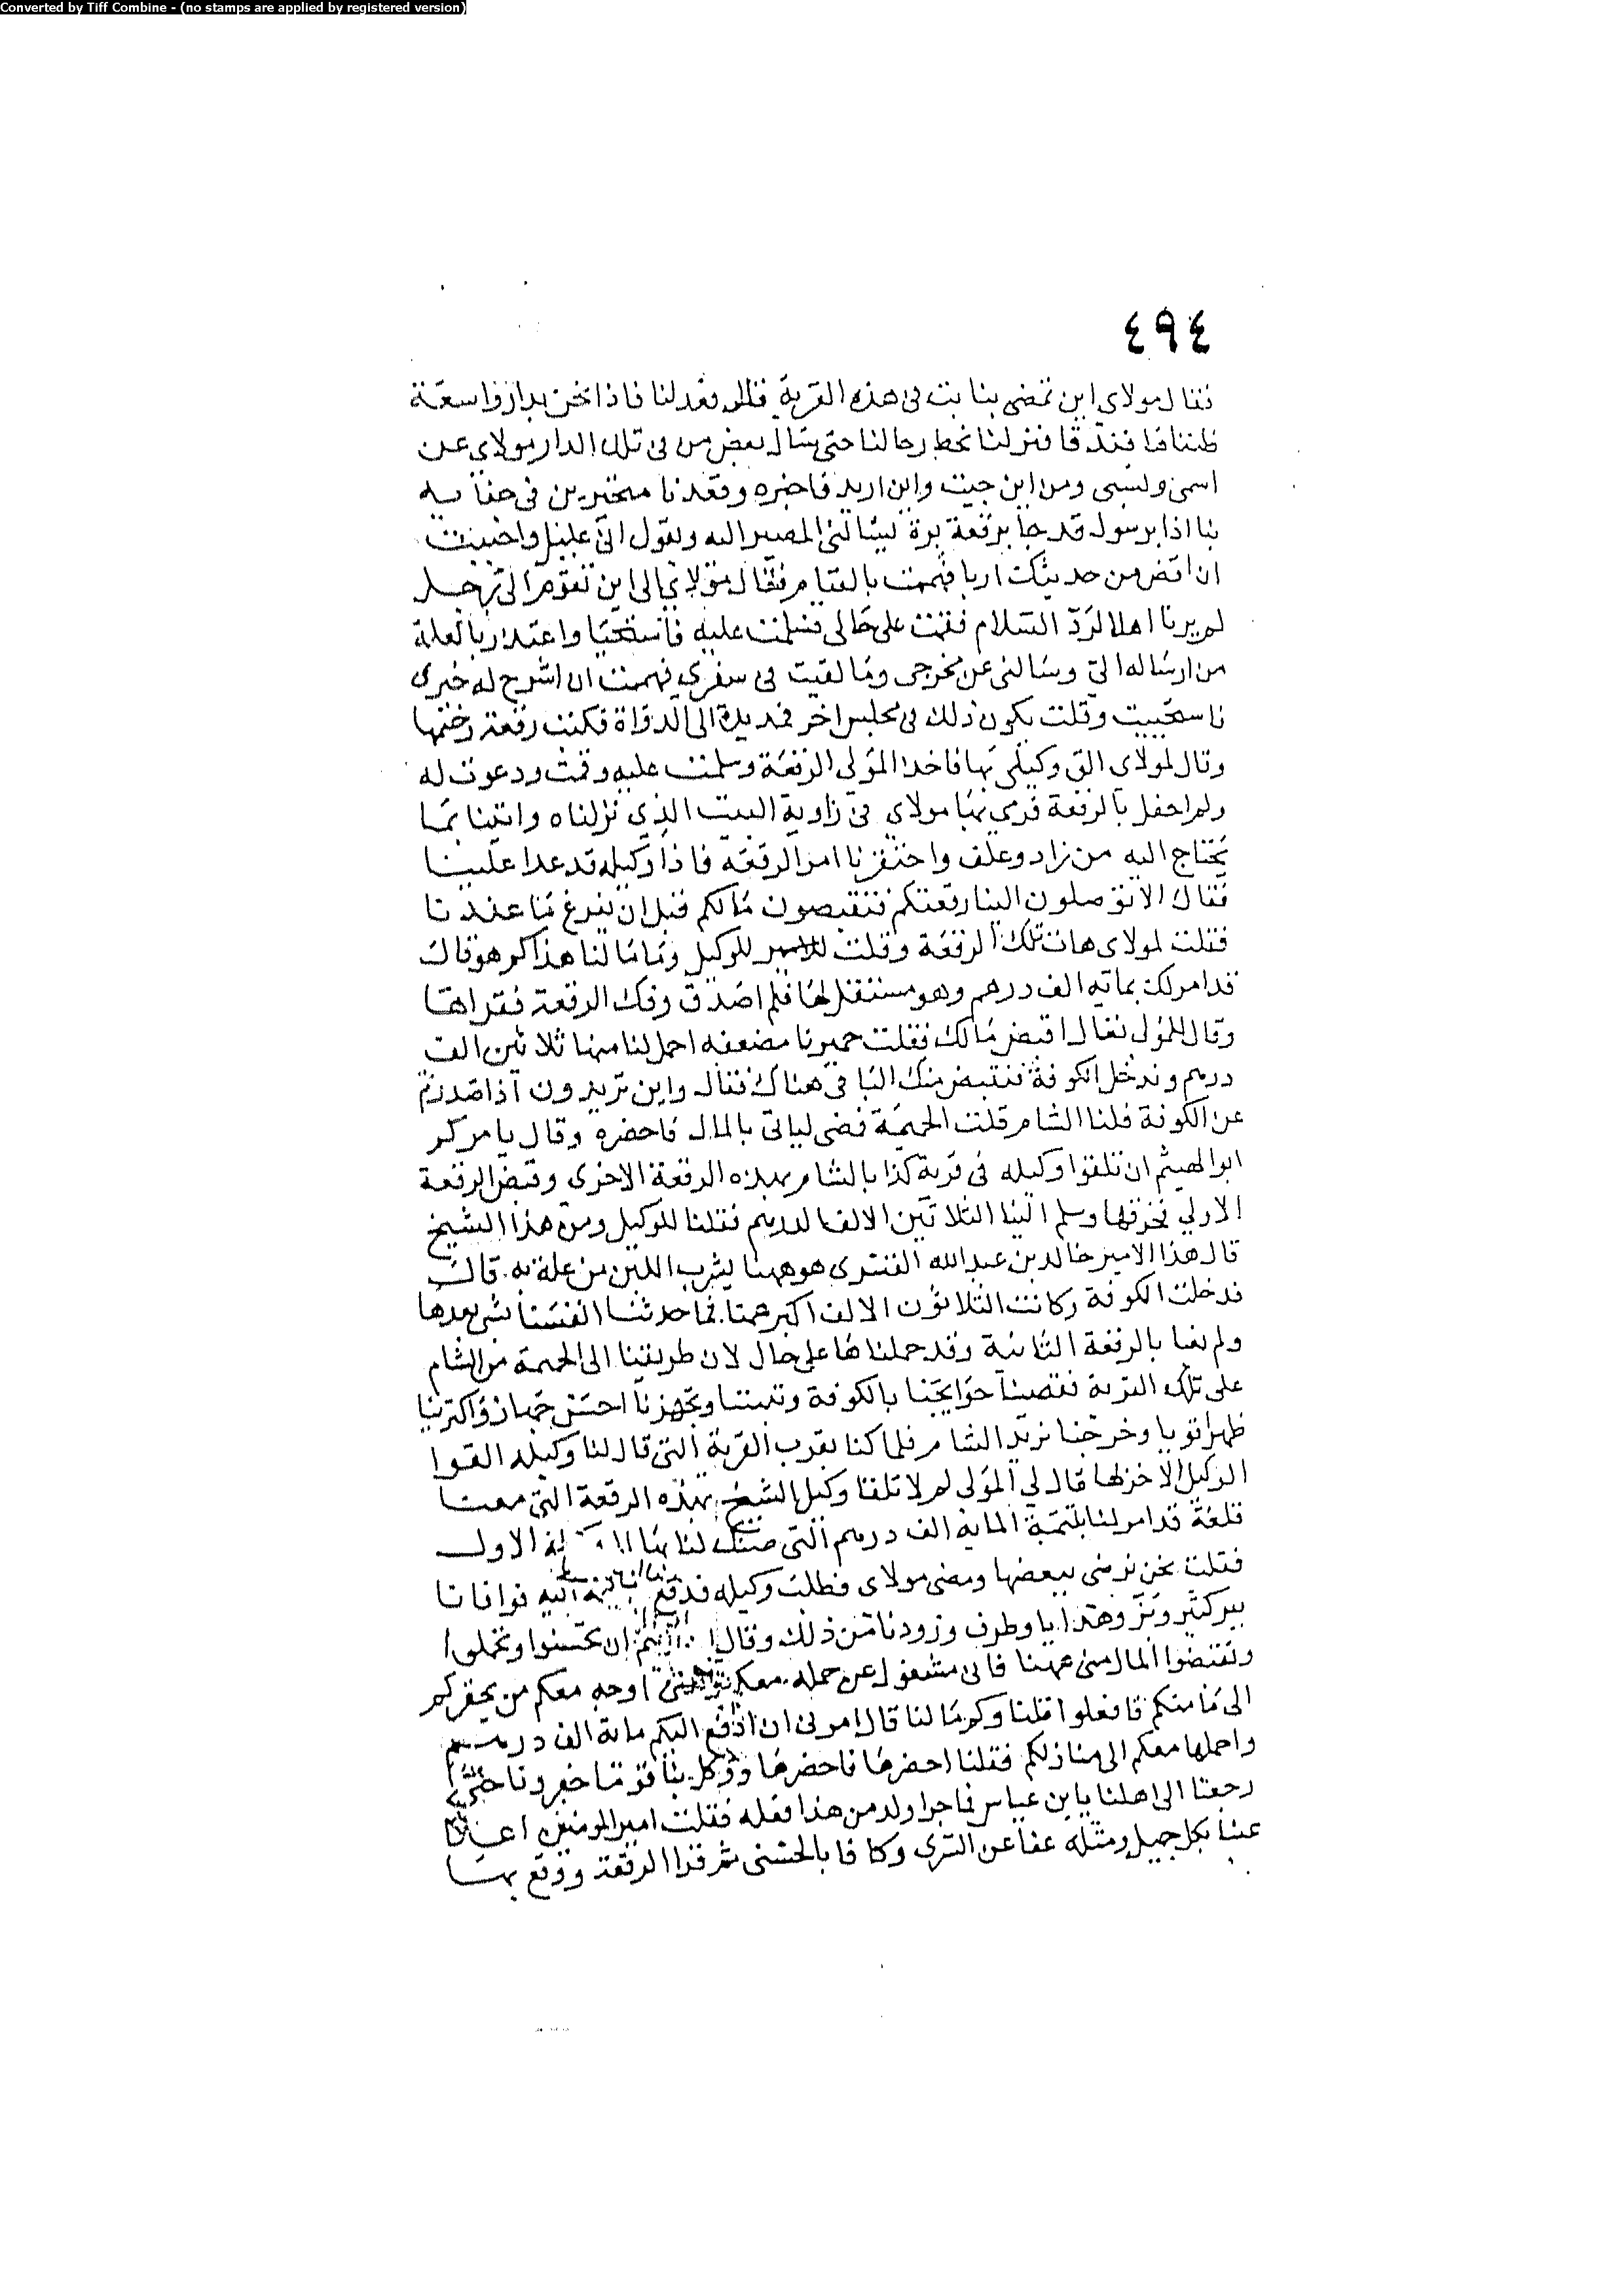 Converted by Tiff Combine - (no stamps are applied by registered version)
٤٩٤
فقال مولاي اين تمضى بنا بت فى هذه القرية فعدلنا فاذا نحن بدار واسعة
ظنناها فندقا فنزلنا نحط رحالنا حتى سال بعض من فى تلك الدار مولاى عن
اسمى ونسبى ومن اين جيت واين اريد فاخبره وقعدنا متخيرين فى
بنا اذا برسول قد جا برقعة يسالنى المصير اليه ويقول انى عليل واحببت
ان اقضى من حديثك اربا فهممت بالقيام فقال مولاي الى اين تقوم الى رجل
لم يرنا اهلا لرد السلام فقمت على حالى فسلمت عليه فاستحيا واعتذر بالعلة
من ارساله الىّ وسالنى عن مخرجى وما لقيت فى سفري فهممت ان اشرح له خبرى
فاستحييت وقلت يكون ذلك فى مجلس اخر فمد يده الى الدواة فكتب رقعة وختمها
وقال لمولاى الق وكيلى بها فاخذ المولى الرقعة وسلمت عليه وقمت ودعوت له
ولم احفل بالرقعة فرمى بها مولاى فى زاوية البيت الذي نزلناه واتينا بما
يحتاج اليه من زاد وعلف واحتقرنا امر الرقعة فاذا وكيله قد غدا علينا
فقال الا توصلون الينا رقعتكم فتقبضون مالكم قبل ان يفرغ ما عندنا
فقلت لمولاى هات تلك الرقعة وقلت للوكيل وما مالنا هذا كم هو قال
قد امر لك بماية الف درهم وهو مستقل لها فلم اصدق وفك الرقعة فقراها
وقال للمولى تعال اقبض مالك فقلت حميرنا مضعفه احمل لنا منها ثلاثين الف
درهم وندخل الكوفة فنقبض منك الباقى هناك فقال واين تريدون اذا صدرتم
عن الكوفة قلنا الشام قلت الحميمة فمضى لياتى بالمال فاحضره وقال يامركم
ابو الهيثم ان تلقوا وكيله فى قرية كذا بالشام بهذه الرقعة الاخرى وقبض الرقعة
الاولي فخرقها وسلم الينا الثلاثين الالف الدرهم فقلنا للوكيل ومن هذا الشيخ
قال هذا الامير خالد بن عبد الله القسرى هو ههنا يشرب اللبن من علة به قال
فدخلت الكوفة وكانت الثلاثون الالف اكبر همنا فما حدثنا انفسنا بشى بعدها
ولم نعبا بالرقعة الثانية وقد حملناها على حال لان طريقنا الى الحميمة من الشام
على تلك القرية فقضينا حوايجنا بالكوفة وتجهزنا احسن جهاز واكترينا
ظهرا قويا وخرجنا نريد الشام فلما كنا بقرب القرية التى قال لنا وكيله القوا
الوكيل الاخر بها قال لي المولى لم لا تلقا وكيل الشيخ بهذه الرقعة التى معنا
فلعله قد امر لنا بتتمة الماية الف درهم التى الاول
فقلت نحن نرضى ببعضها ومضى مولاى فطلب وكيله فدفع اليه فوافانا
ببر كثير ونزل وهدايا وطرف وزودنا من ذلك وقال ان تحسنوا وتجملوا
وتقبضوا المال منى ههنا فانى مشغول عن حمله معكم اوجه معكم من يخفركم
الى مامنكم فافعلوا قلنا وكم مالنا قال امرنى ان ادفع اليكم ماية الف درهم
واحملها معكم الى منازلكم فقلنا احضرها فاحضرها ووكل بنا قوما خفرونا حتى
رجعنا الى اهلنا يابن عياس فما جزا ولد من هذا فعله فقلت امير المومنين اعلا
عينا بكل جميل ومثله عفا عن البرى وكافا بالحسنى ثم قرا الرقعة ووقع بها